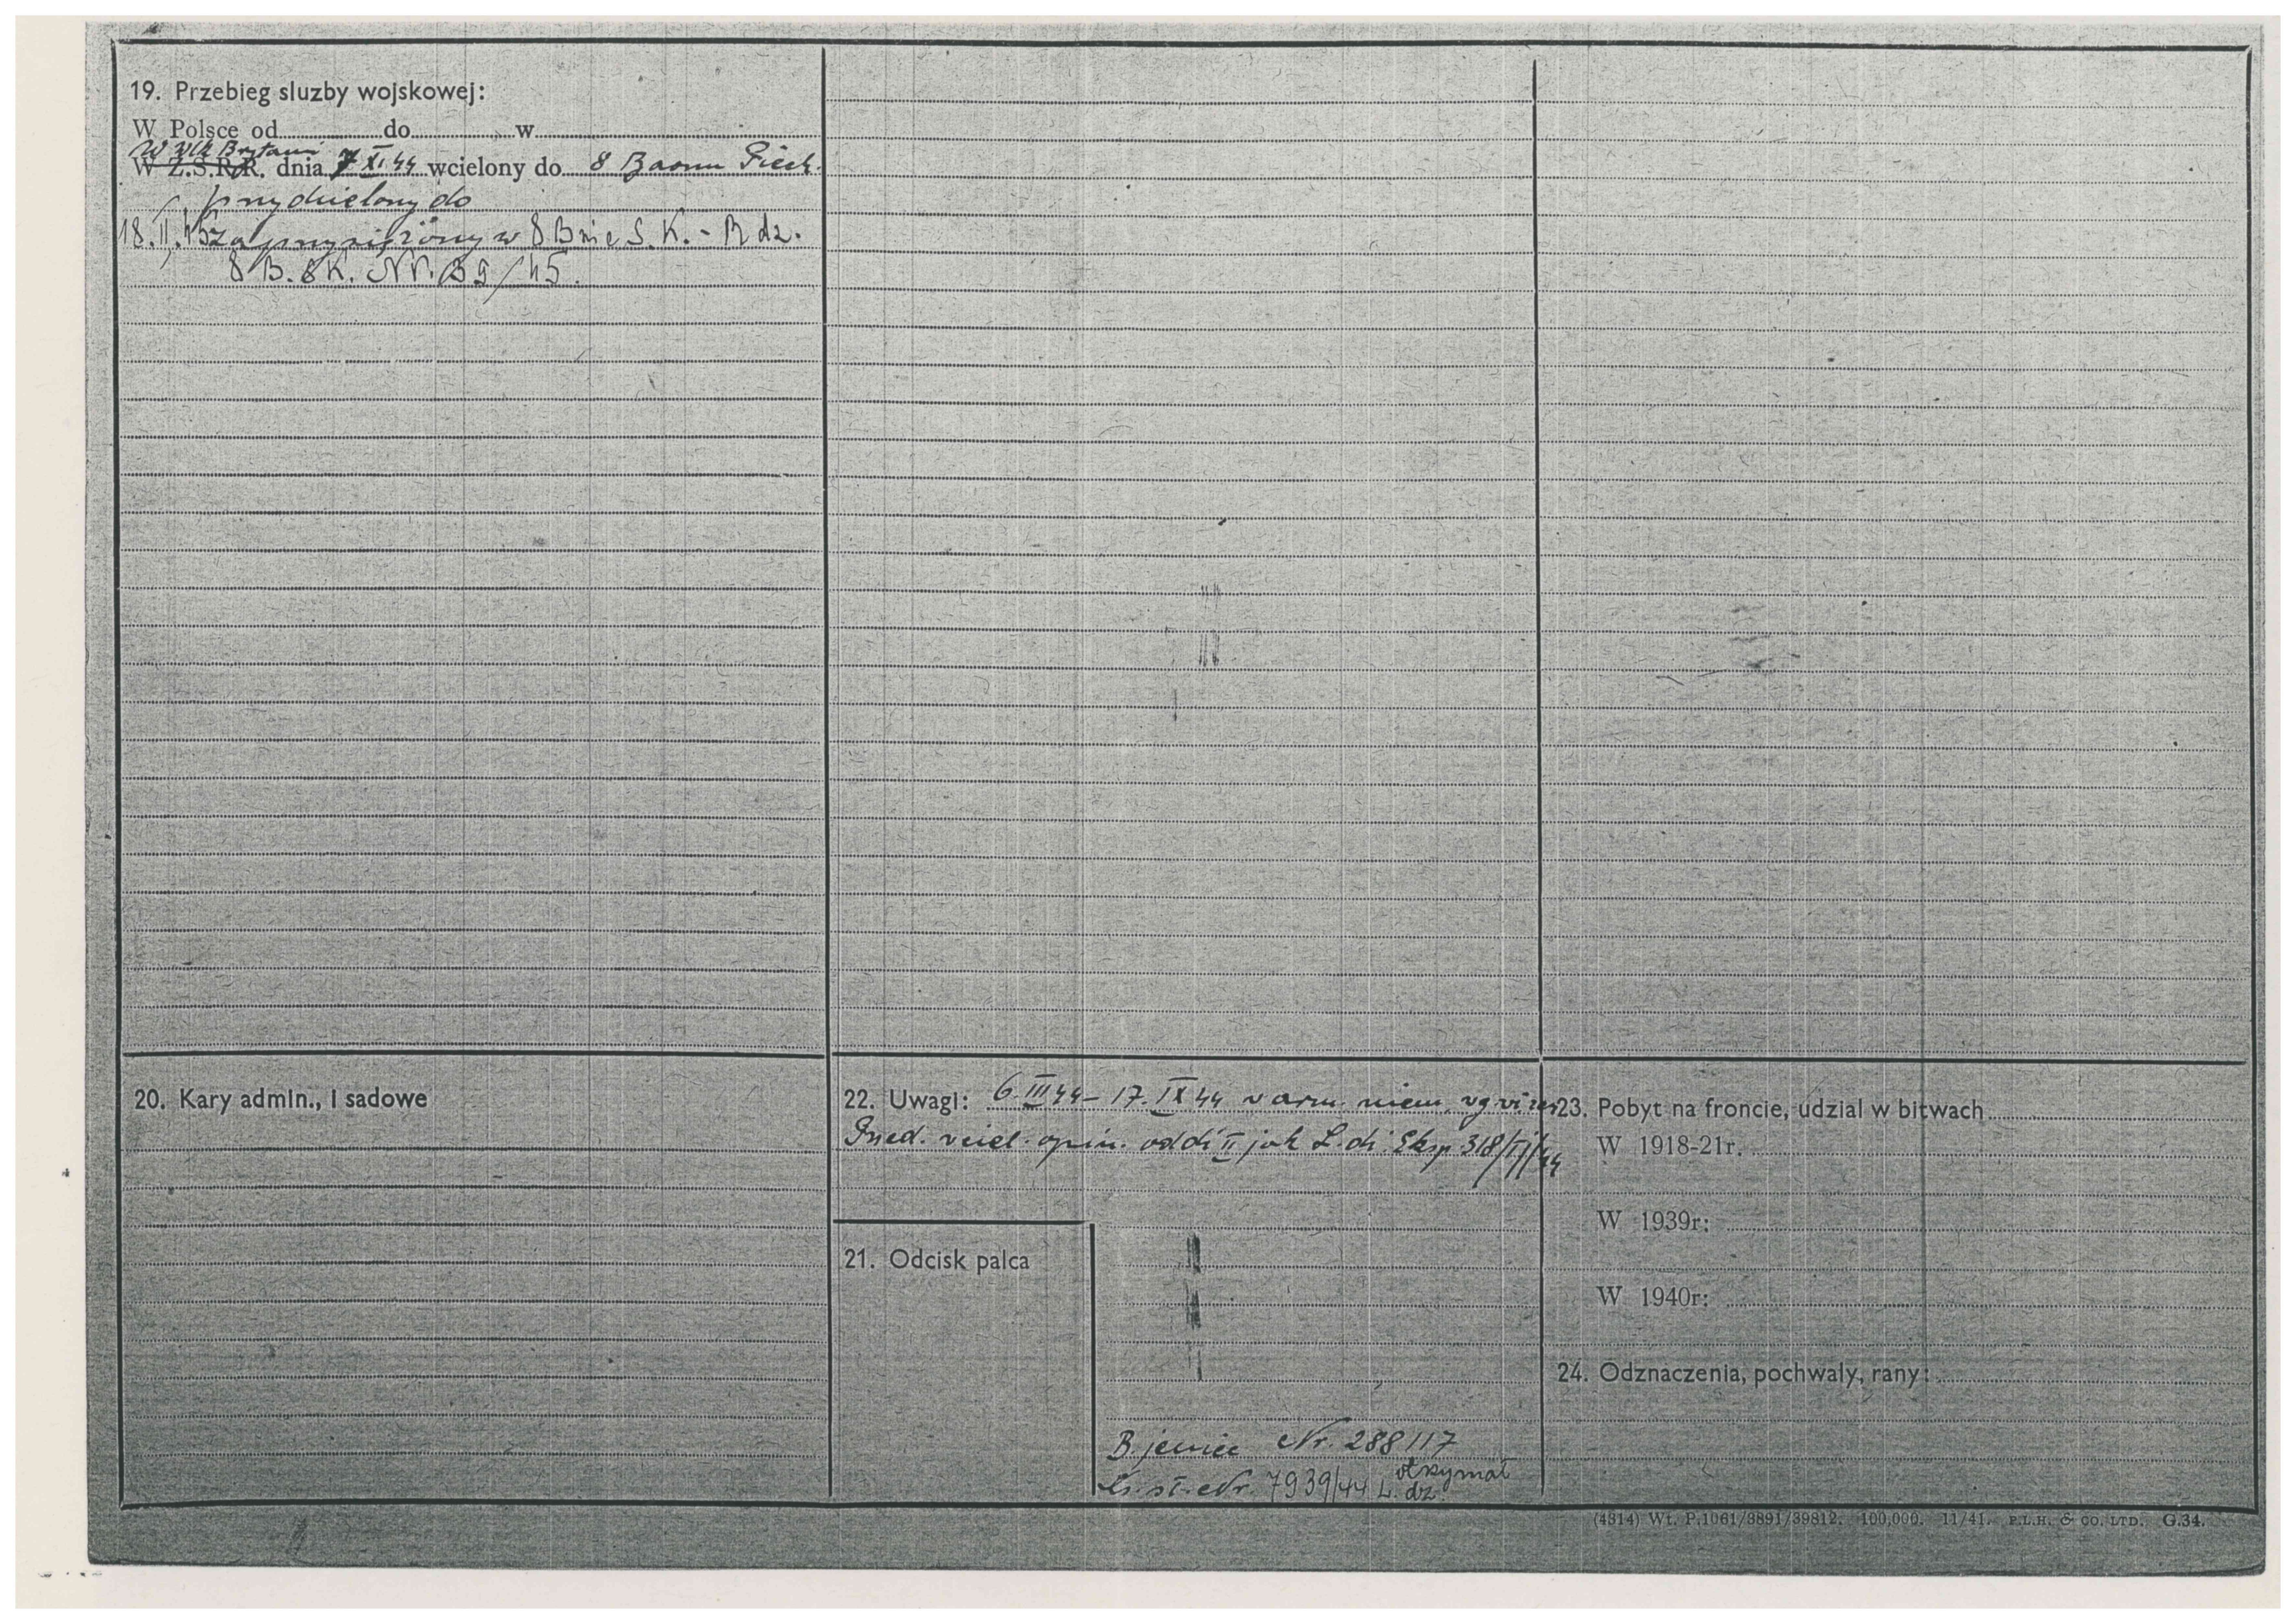 19. Przebieg sluzby wojskowej:
W Polsce od do w
W Wlk Brytani
W Z.S.R.R. dnia 7 XI.44 wcielony do 8 Baonu Piech.
przydzielony do
18.II.45 zaprzysiężony w 8 Bnie S.K. - R dz.
8 B.SK. Nr. 39/45.
20. Kary admin., i sadowe
22. Uwagi: 6.III 44 - 17.IX 44 w arm. niem.
opin. oddz II jak L.dz. Eksp 318/II/44
21. Odcisk palca
B. jeniec Nr. 288117
Nr. 7939/44 L. dz. otrzymał
23. Pobyt na froncie, udzial w bitwach
W 1918-21r.
W 1939r:
W 1940r:
24. Odznaczenia, pochwaly, rany:
(4314) Wt. P.1061/3891/39812. 100,000. 11/41. P.L.H. & CO. LTD. G.34.